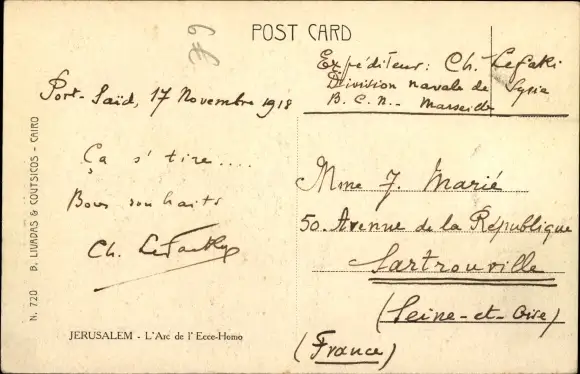 POST CARD
Expéditeur: Ch.
Division navale de Syrie
B.C.N.- Marseille
Port-Saïd, 17 Novembre 1918
Ça s'tire....
Bons souhaits
Ch.
Mme J. Marié
50. Avenue de la République
Sartrouville
(Seine-et-Oise)
(France)
JERUSALEM - L'Arc de l'Ecce-Homo
N. 720 B. LIVADAS & COUTSICOS - CAIRO